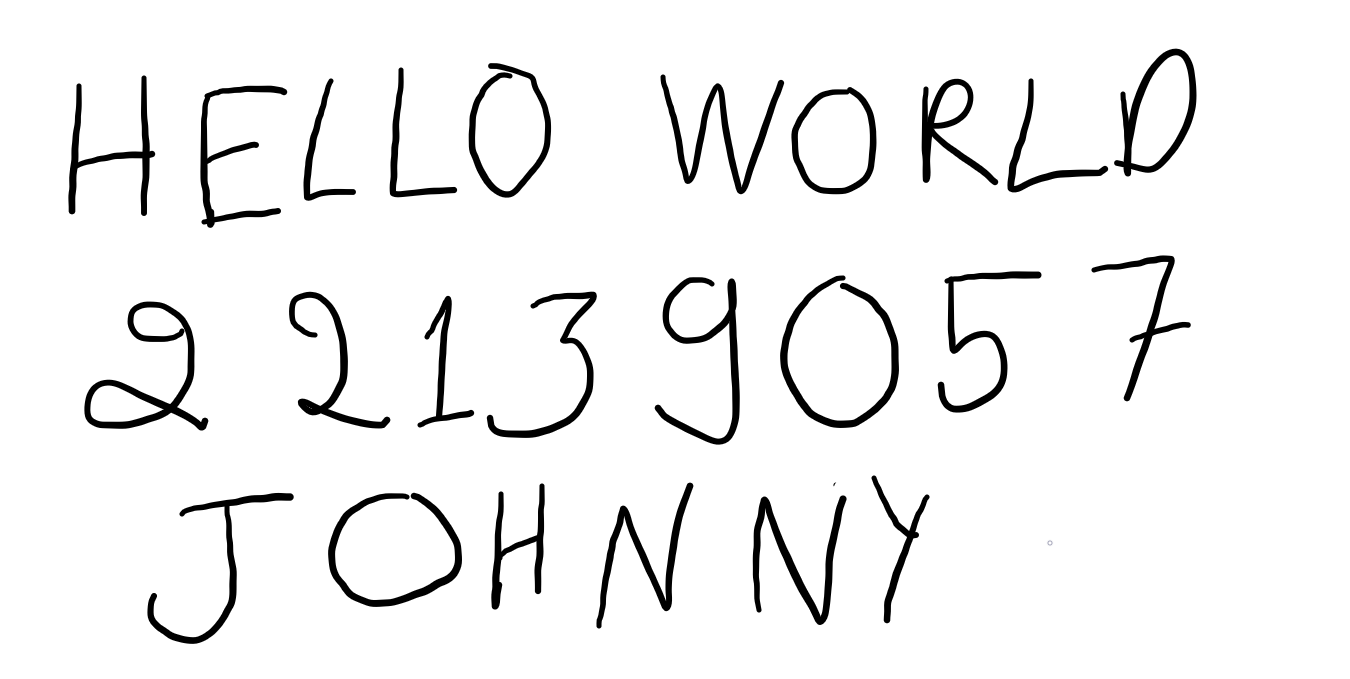 HELLO WORLD
22139057
JOHNNY